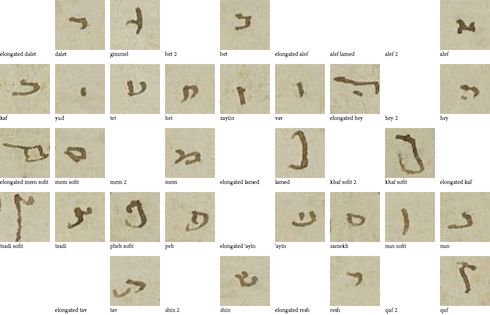 elongated dalet dalet gimmel bet 2 bet elongated alef alef lamed alef 2 alef
kaf yud tet het zayin vav elongated hey hey 2 hey
elongated mem sofit mem sofit mem 2 mem elongated lamed lamed khaf sofit 2 khaf sofit elongated kaf
tsadi sofit tsadi pheh sofit peh elongated 'ayin 'ayin samekh nun sofit nun
elongated tav tav shin 2 shin elongated resh resh quf 2 quf